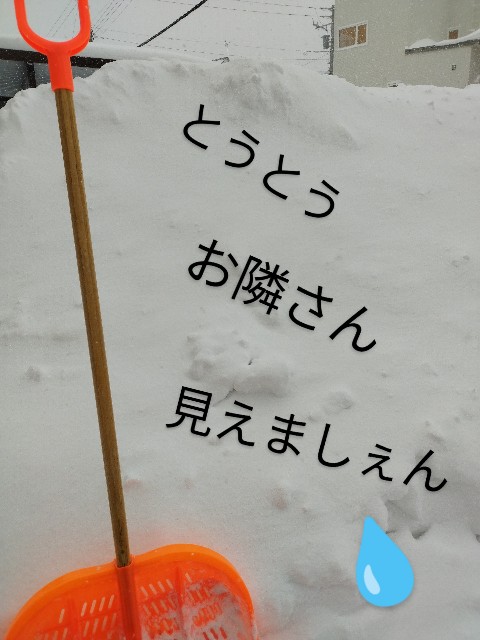 とうとう
お隣さん
見えましぇん